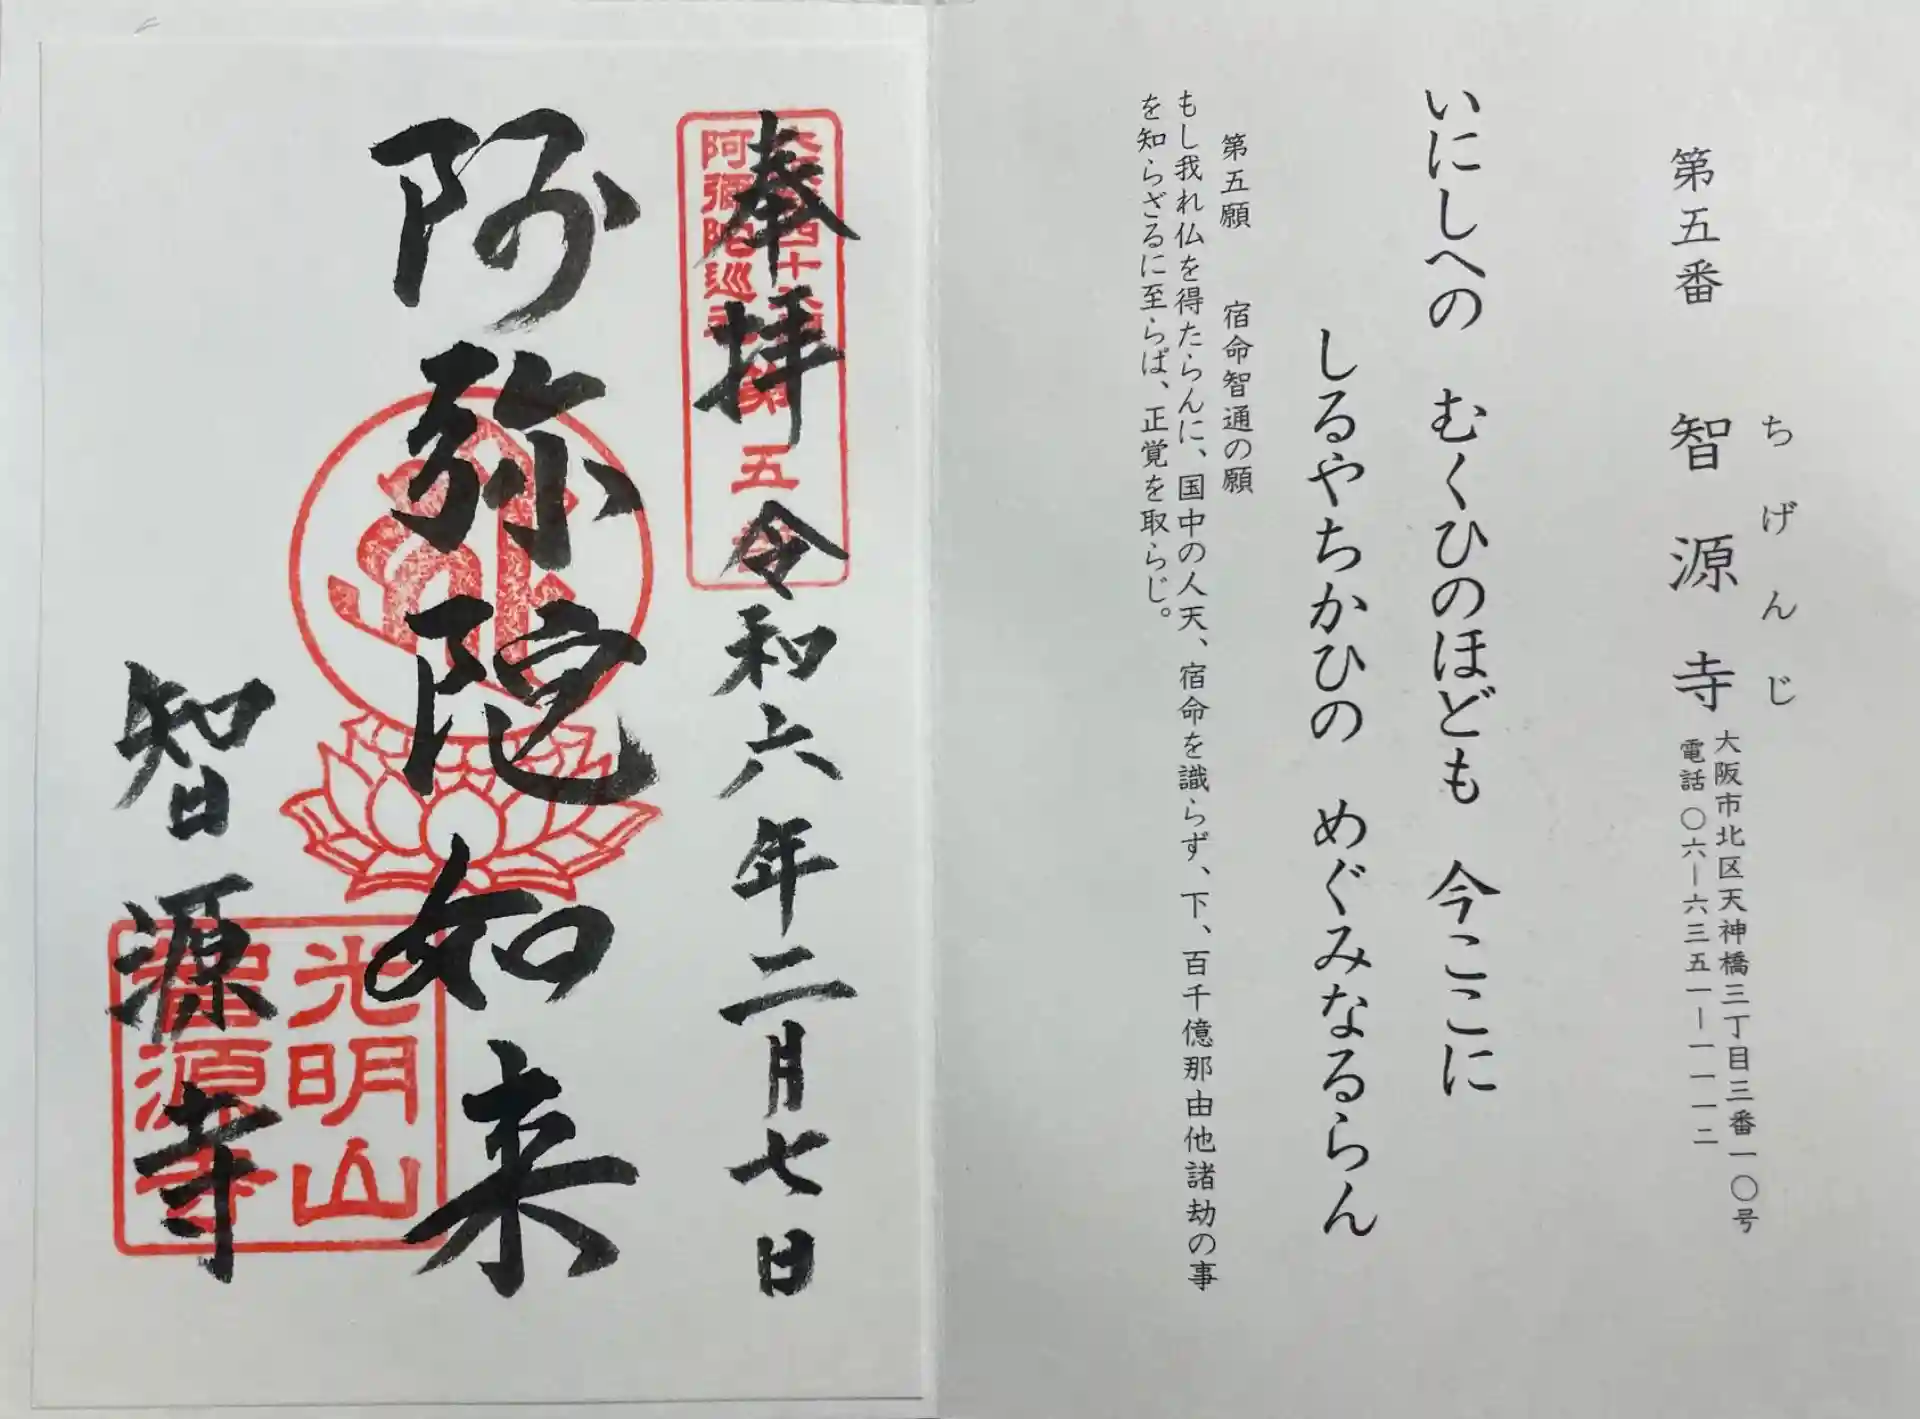 第五番 智源寺
ちげんじ
大阪市北区天神橋三丁目三番一〇号
電話〇六ー六三五一ー一一一二
いにしへの むくひのほども 今ここに
しるやちかひの めぐみなるらん
第五願 宿命智通の願
もし我れ仏を得たらんに、国中の人天、宿命を識らず、下、百千億那由他諸劫の事
を知らざるに至らば、正覚を取らじ。
奉拝 令和六年二月七日
阿弥陀如来
智源寺
阿彌陀巡
第五
光明山
智源寺